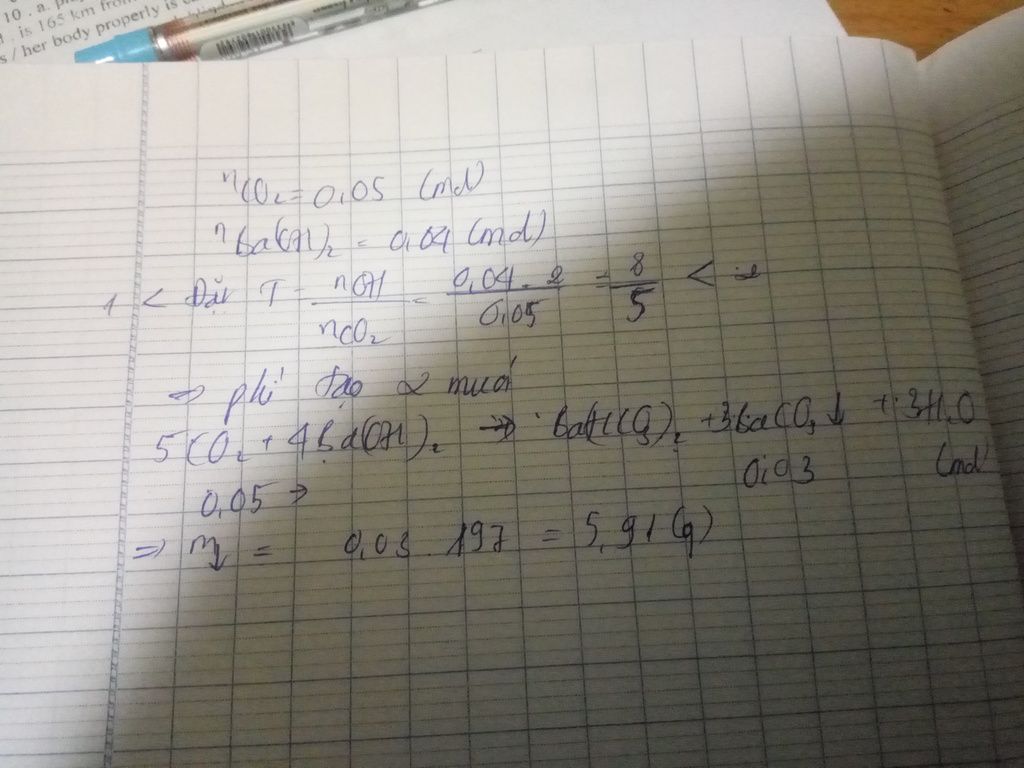 10. a. 
is 165 km from
s / her body properly is
nCO₂ = 0,05 (mol)
nBa(OH)₂ = 0,04 (mol)
1 < Đặt T = nOH / nCO₂ = 0,04 . 2 / 0,05 = 8 / 5 < 2
⇒ pứ tạo 2 muối
5CO₂ + 4Ba(OH)₂ → Ba(HCO₃)₂ + 3BaCO₃↓ + 3H₂O
0,05 → 0,03 (mol)
⇒ m↓ = 0,03 . 197 = 5,91 (g)